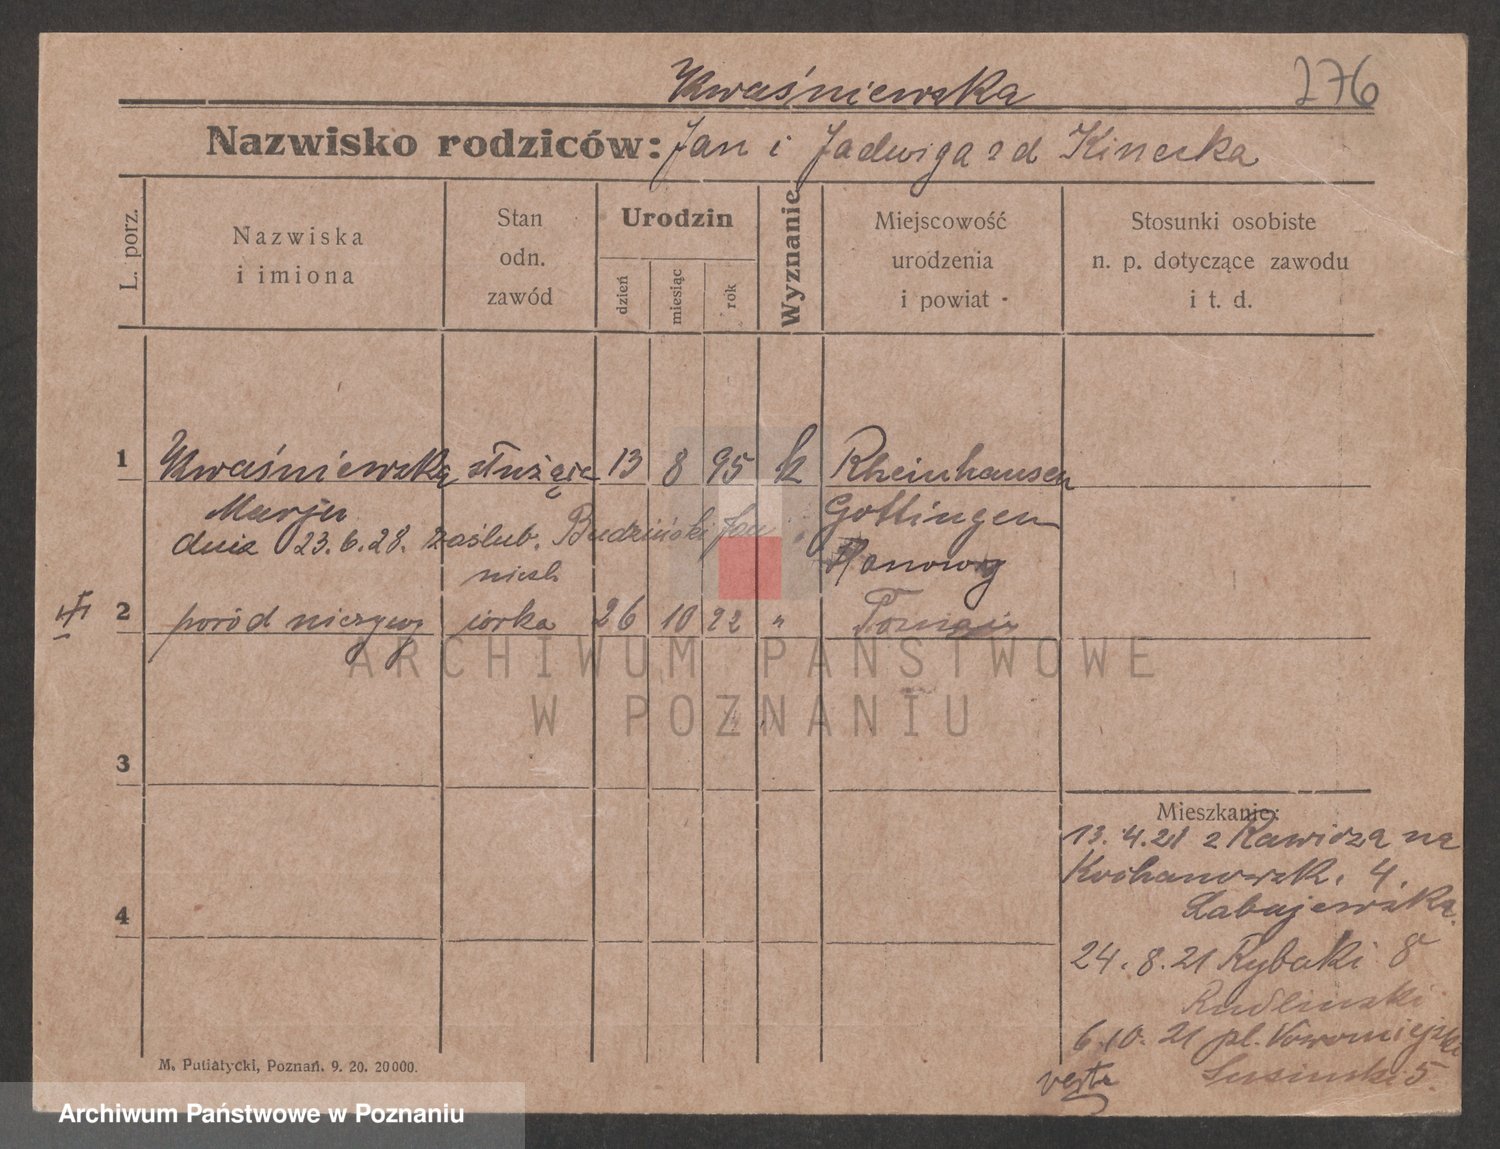 Kwaśniewska
276
Nazwisko rodziców: Jan i Jadwiga zd
L. porz.
Nazwiska
i imiona
Stan
odn.
zawód
Urodzin
dzień
miesiąc
rok
Wyznanie
Miejscowość
urodzenia
i powiat
Stosunki osobiste
n. p. dotyczące zawodu
i t. d.
1 Kwaśniewska służąca 13 8 95 k Rheinhausen
Marja Gottingen
dnia 23.6.28. zaślub. Budziński Jan
niesl.
2 poród nieżywy córka 26 10 22 " Poznań
ARCHIWUM PAŃSTWOWE
W POZNANIU
3
4
Mieszkanie:
13.4.21 z na
Kochanowsk. 4.
24.8.21 Rybaki 8
Rudlinski
6.10.21 pl. Nowomiejski
5.
verte
M. Putiatycki, Poznań. 9. 20. 20000.
Archiwum Państwowe w Poznaniu